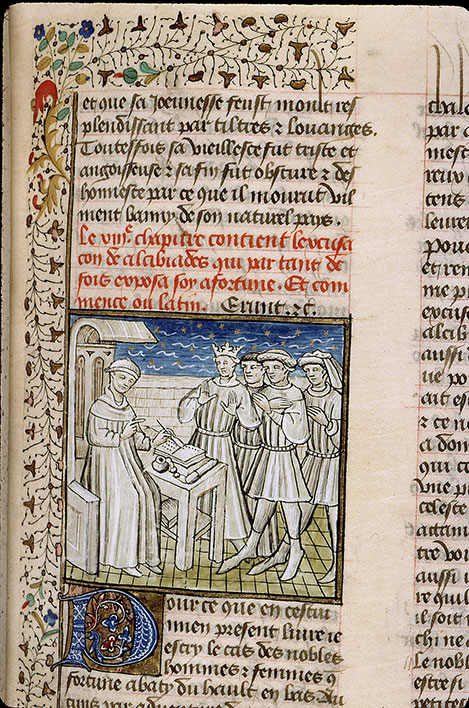 et que sa Joennesse feust moult res
plendissant par tiltres ⁊ louanges.
Touteffois sa vieillesce fut triste et
angoisseuse ⁊ sa fin fut obscure ⁊ des
honneste par ce que il mourut vil
ment banny de son naturel pays.
Le viii.e chapitre contient lexcusa
con de alcibiades qui par tant de
fois exposa soy a fortune. Et com
mence ou latin. Erunt ⁊c.
Pour ce que en cestui
mien present liure ie
escry le cas des nobles
hommes ⁊ femmes q̄
fortune abaty du hault en bas Au
cuns par
par
mest
tens
leure
pour
et ren
me p
excuse
alcib
aussi
ne po
ait es
⁊ ce n
a don
qui c
vne p
celeste
attain
tre
aussi
re quil
il soit
chi ne a
le nobl
estre si
petites